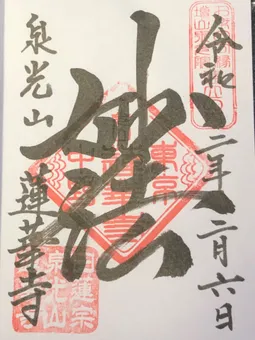 令和二年二月六日
妙法
泉光山
蓮華寺
日蓮宗
泉光山